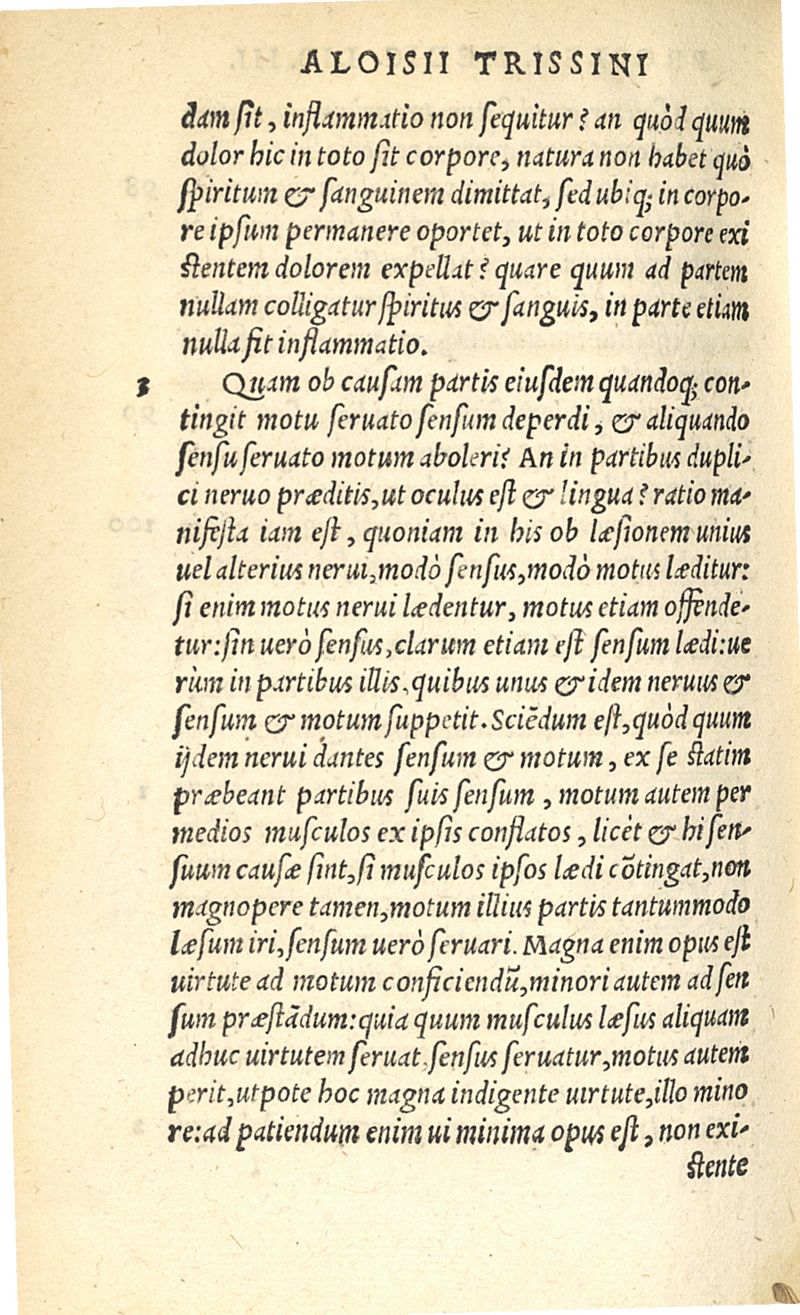 ALOISII TRISSINI
dam ſit, inflammatio non ſequitur? an quòd quum
dolor hic in toto ſit corpore, natura non habet quò
ſpiritum & ſanguinem dimittat, ſed ubiq; in corpo-
re ipſum permanere oportet, ut in toto corpore exi
ſtentem dolorem expellat? quare quum ad partem
nullam colligatur ſpiritus & ſanguis, in parte etiam
nulla fit inflammatio.
3 Quam ob cauſam partis eiuſdem quandoq; con-
tingit motu ſeruato ſenſum deperdi, & aliquando
ſenſu ſeruato motum aboleri? An in partibus dupli-
ci neruo præditis, ut oculus eſt & lingua? ratio ma-
nifeſta iam eſt, quoniam in his ob læſionem unius
uel alterius nerui, modò ſenſus, modò motus læditur:
ſi enim motus nerui lædentur, motus etiam offende-
tur: ſin uerò ſenſus, clarum etiam eſt ſenſum lædi: ue
rùm in partibus illis, quibus unus & idem neruus &
ſenſum & motum ſuppetit. Sciēdum eſt, quòd quum
ijdem nerui dantes ſenſum & motum, ex ſe ſtatim
præbeant partibus ſuis ſenſum, motum autem per
medios muſculos ex ipſis conflatos, licèt & hi ſen-
ſuum cauſæ ſint, ſi muſculos ipſos lædi cōtingat, non
magnopere tamen, motum illius partis tantummodo
læſum iri, ſenſum uerò ſeruari. Magna enim opus eſt
uirtute ad motum conficiendū, minori autem ad ſen
ſum præſtādum: quia quum muſculus læſus aliquam
adhuc uirtutem ſeruat, ſenſus ſeruatur, motus autem
perit, utpote hoc magna indigente uirtute, illo mino
re: ad patiendum enim ui minima opus eſt, non exi-
ſtente